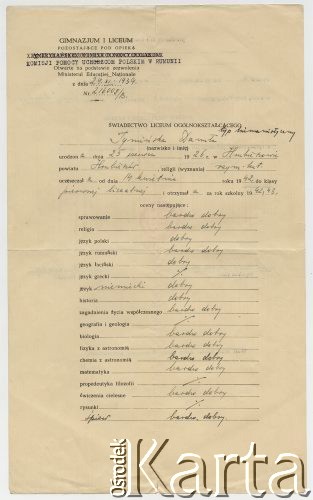 GIMNAZJUM I LICEUM
POZOSTAJĄCE POD OPIEKĄ
KOMISJI POMOCY UCHODŹCOM POLSKIM W RUMUNII
Otwarte na podstawie zezwolenia
Ministerul Educaţiei Naţionale
z dnia 29.XI.1939
Nr. 216008/B.
ŚWIADECTWO LICEUM OGÓLNOKSZTAŁCĄCEGO
typ humanistyczny
Danuta
(nazwisko i imię)
urodzona dnia 25 czerwca w Hrubieszowie
powiatu Hrubieszów, religii (wyznania) rzym. kat.
uczęszczała od dnia 14 kwietnia roku 1942 do klasy
pierwszej licealnej i otrzymała za rok szkolny 42/43,
oceny następujące:
sprawowanie bardzo dobry
religia bardzo dobry
język polski dobry
język rumuński dobry
język łaciński dobry
język grecki
język niemiecki dobry
historia dobry
zagadnienia życia współczesnego bardzo dobry
geografia i geologia
biologia bardzo dobry
fizyka z astronomią bardzo dobry
chemia z astronomią bardzo dobry
matematyka bardzo dobry
propedeutyka filozofii
ćwiczenia cielesne bardzo dobry
rysunki
śpiew bardzo dobry
Ośrodek
Karta